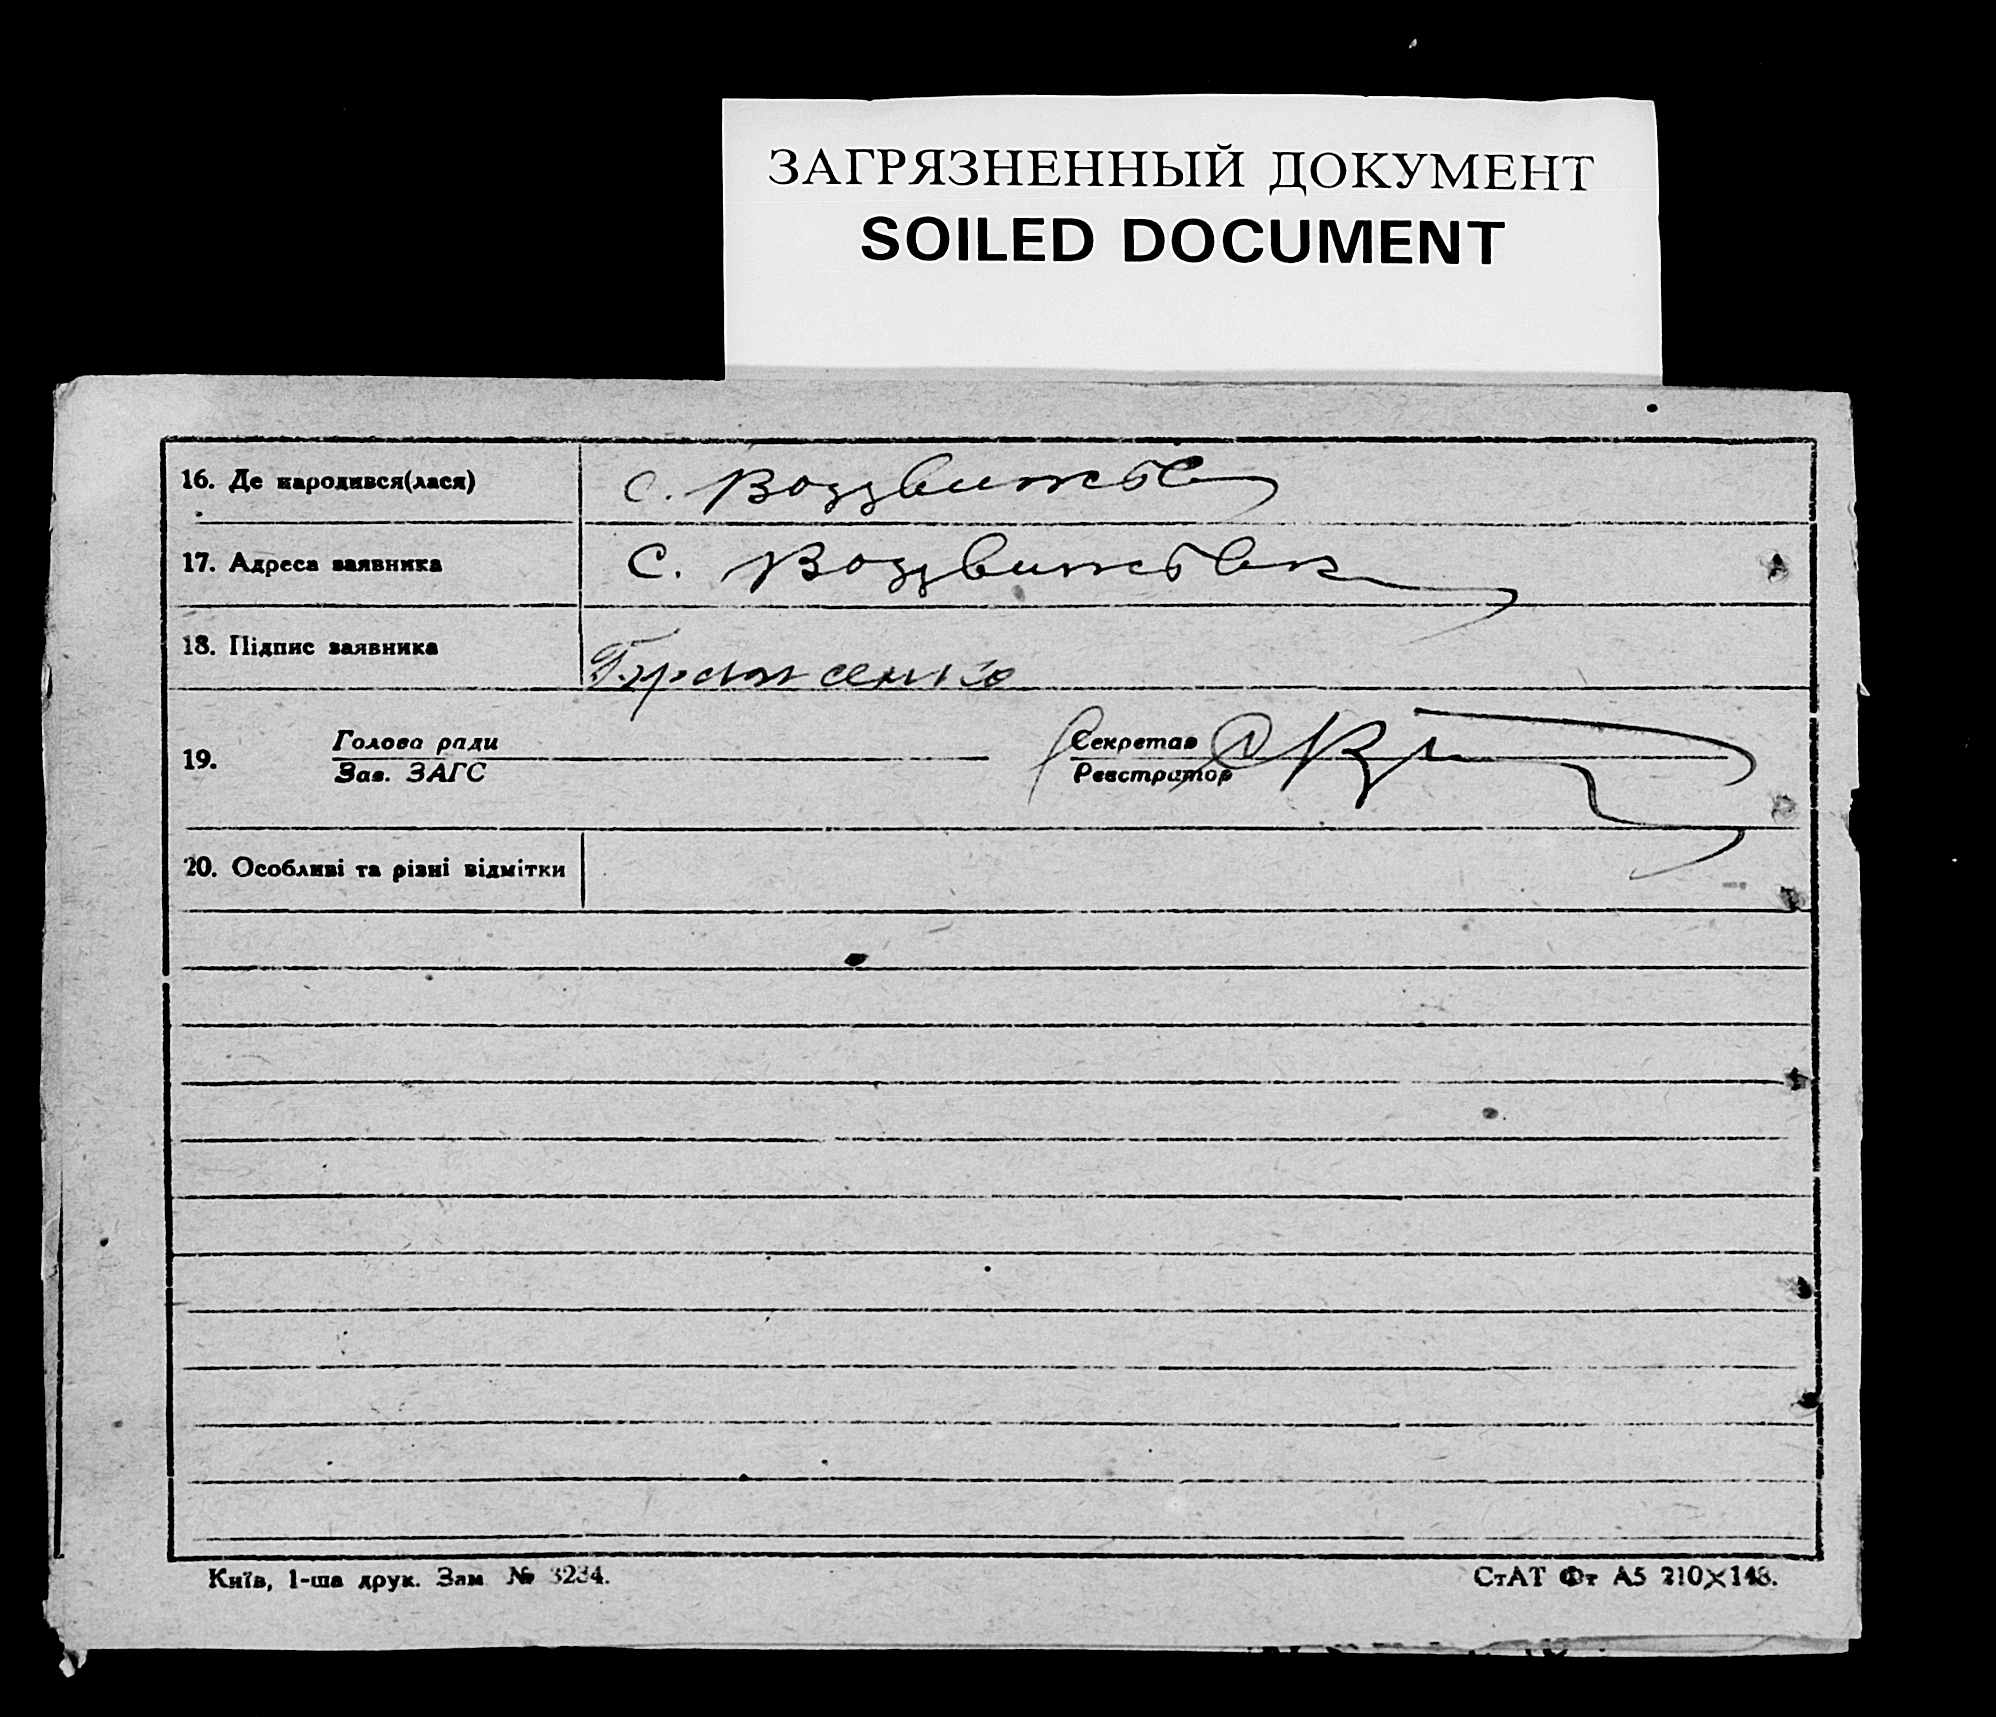 ЗАГРЯЗНЕННЫЙ ДОКУМЕНТ
SOILED DOCUMENT
16. Де народився(лася) с. Воздвижів
17. Адреса заявника с.
18. Підпис заявника
19. Голова ради Секретар
Зав. ЗАГС Реєстратор
20. Особливі та різні відмітки
Київ, 1-ша друк. Зам. № 3234.
СтАТ Фт А5 210×148.